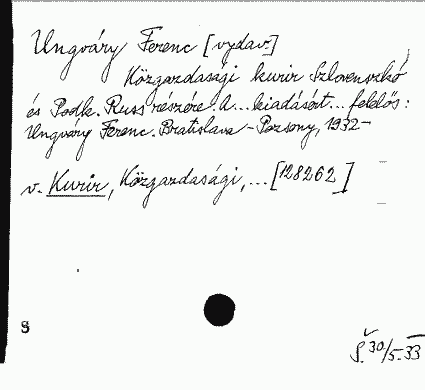 Ungváry Ferenc [vydav.]
Közgazdasági kurir Szlovenszkó
és Podk. Russ részére. A... kiadásért... felelős:
Ungváry Ferenc. Bratislava - Pozsony, 1932-
v. Kurir, Közgazdasági, ... [128262]
S
S. 30/5.33